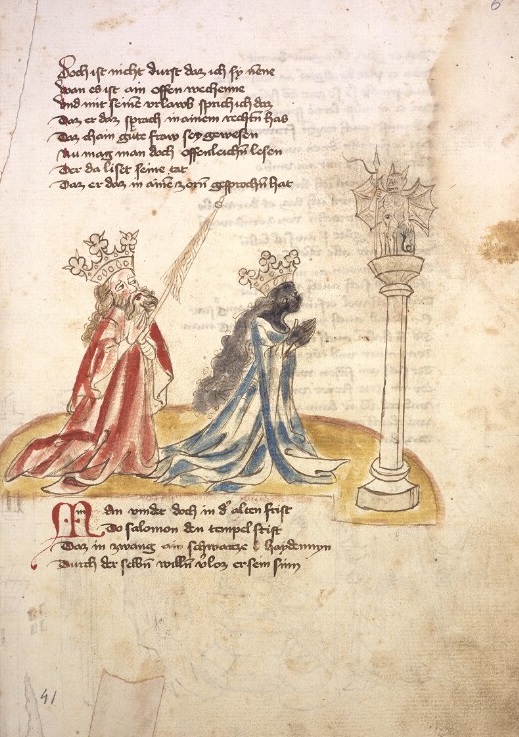 Doch ist nicht durst daz ich sy nene
Wan es ist am offen wechenne
Vnd mit seinē vrlawb sprich ich daz
Daz er daz sprach in ainem rechtn has
Daz chain gūte fraw sey gewesen
Nu mag man doch offenleichn lesen
Der da liset seine tat
Daz er daz in ainē zorn gesprochn hat
Man vindt doch in dˀ alten frist
Do salomon den tempel stift
Daz in zwang ain schwartze haydennyn
Durch der selbn willn vˀloz er sein sinn
41
6